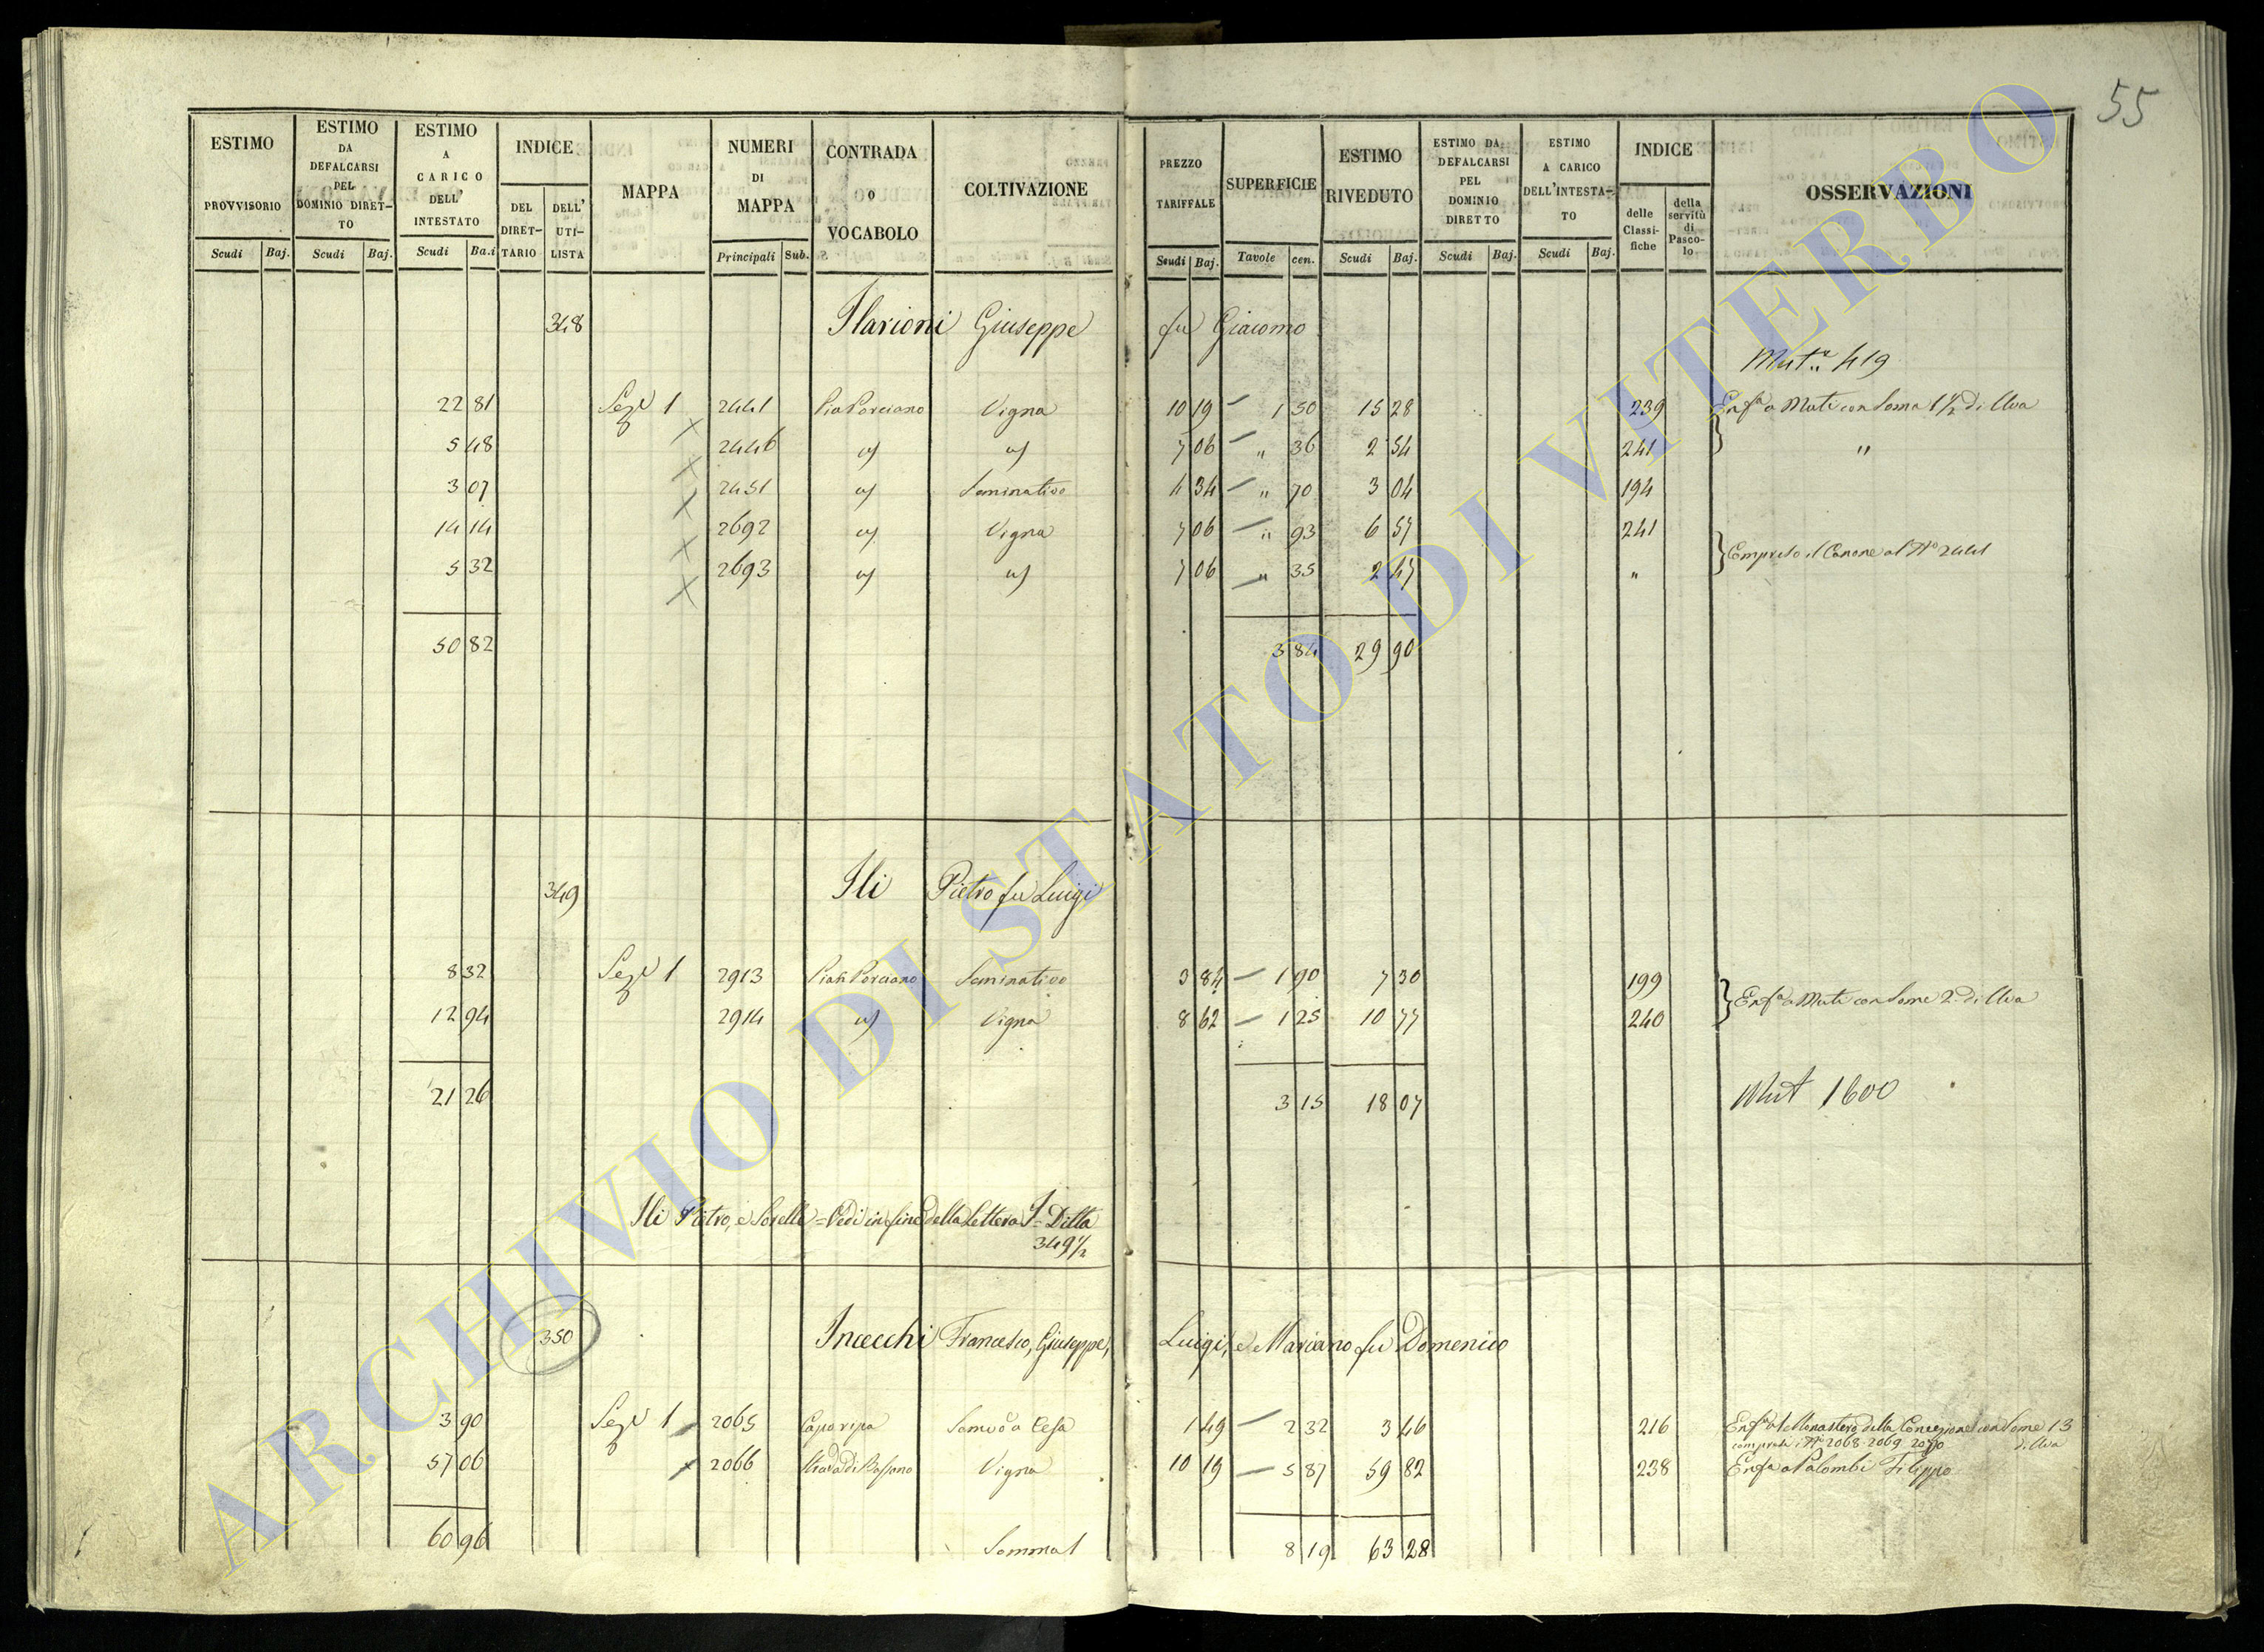 55
ESTIMO PROVVISORIO | ESTIMO DA DEFALCARSI PEL DOMINIO DIRET-TO | ESTIMO A CARICO DELL' INTESTATO | INDICE | MAPPA | NUMERI DI MAPPA | CONTRADA O VOCABOLO | COLTIVAZIONE | PREZZO TARIFFALE | SUPERFICIE | ESTIMO RIVEDUTO | ESTIMO DA DEFALCARSI PEL DOMINIO DIRETTO | ESTIMO A CARICO DELL'INTESTA-TO | INDICE | OSSERVAZIONI
DEL DIRET-TARIO | DELL' UTI-LISTA | delle Classi-fiche | della servitù di Pasco-lo
Scudi | Baj. | Scudi | Baj. | Scudi | Ba.i | Principali | Sub. | Scudi | Baj. | Tavole | cen. | Scudi | Baj. | Scudi | Baj. | Scudi | Baj.
348 Ilarioni Giuseppe fu Giacomo
Mut.e 419
22 81 | Sez.e 1 | 2441 | Pia Porciano | Vigna | 10 19 | 1 50 | 15 28 | 239 | Enf.a a Muti con Soma 1 1/2 di Uva
5 48 | 2446 | " | " | 7 06 | " 36 | 2 54 | 241 | "
3 07 | 2451 | " | Seminativo | 4 34 | " 70 | 3 04 | 194
14 14 | 2692 | " | Vigna | 7 06 | " 93 | 6 57 | 241 | Compreso il Canone al N.o 2441
5 32 | 2693 | " | " | 7 06 | " 35 | 2 47 | "
50 82 | 3 84 | 29 90
349 Ili Pietro fu Luigi
8 32 | Sez.e 1 | 2913 | Pian Porciano | Seminativo | 3 84 | 1 90 | 7 30 | 199 | Enf.a a Muti con Some 2 di Uva
12 94 | 2914 | " | Vigna | 8 62 | 1 25 | 10 77 | 240
21 26 | 3 15 | 18 07
Mut 1600
Ili Pietro, e Sorelle = Vedi in fine della Lettera I = Ditta
349 1/2
350 Incecchi Francesco, Giuseppe, Luigi, e Marciano fu Domenico
3 90 | Sez.e 1 | 2065 | Caparipa | 1 49 | 2 32 | 3 46 | 216 | Enf.a al Monastero della Concezione con Some 13
compresi i N.i 2068 2069 2070 di Uva
57 06 | 2066 | Strada di Bassano | Vigna | 10 19 | 5 87 | 59 82 | 238 | Enf.a a Palombi Filippo
60 96 | Somma | 8 19 | 63 28
ARCHIVIO DI STATO DI VITERBO